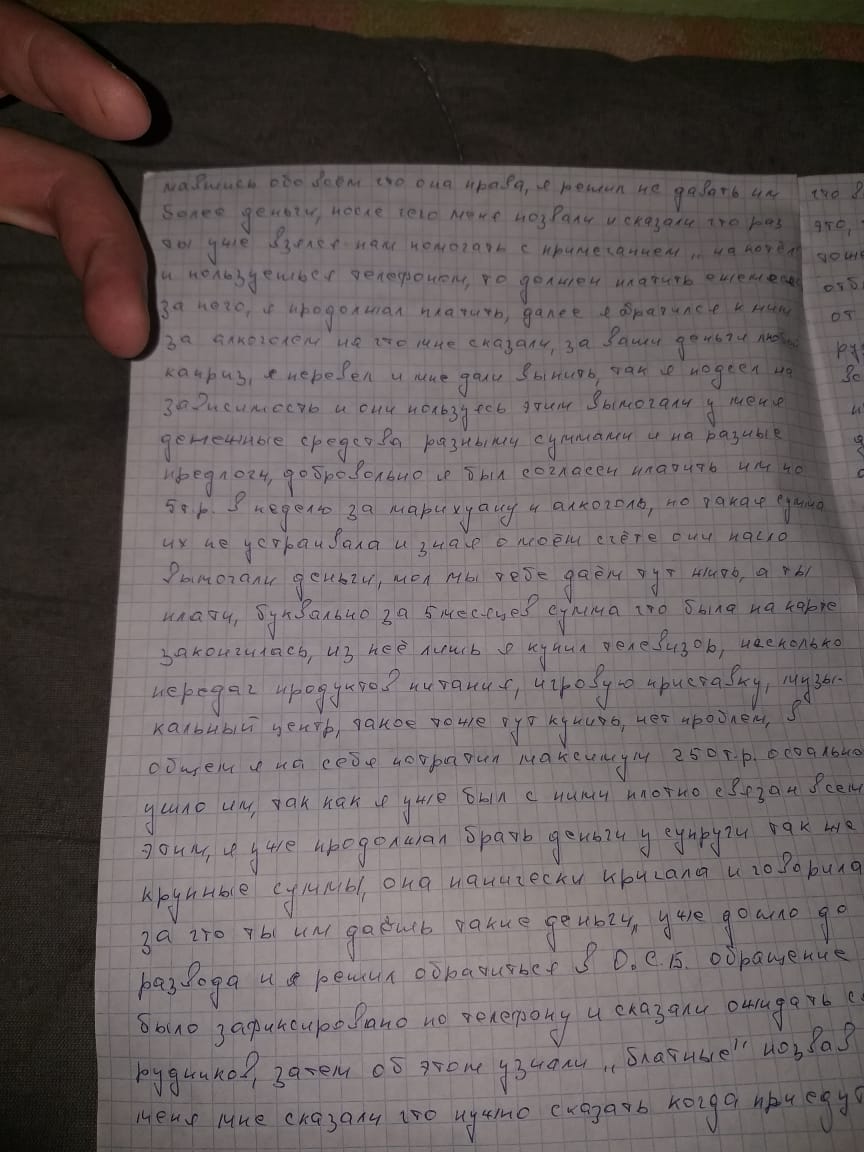 мавшись обо всём что она права, я решил не давать им
более деньги, после чего меня позвали и сказали что раз
ты уже взялся нам помогать с примечанием „на котёл
и пользуешься телефоном, то должен платить ежемес
за него, я продолжал платить, далее я обратился к ним
за алкоголем на что мне сказали, за ваши деньги любой
каприз, я перевел и мне дали выпить, так я подсел на
зависимость и они пользуясь этим вымогали у меня
денежные средства разными суммами и на разные
предлоги, добровольно я был согласен платить им по
5т.р. в неделю за марихуану и алкоголь, но такая сумма
их не устраивала и зная о моём счёте они нагло
вымогали деньги, мол мы тебе даём тут жить, а ты
плати, буквально за 5 месяцев сумма что была на карте
закончилась, из неё лишь я купил телевизор, несколько
передач продуктов питания, игровую приставку, музы-
кальный центр, такое тоже тут купить, нет проблем, в
общем я на себя потратил максимум 250т.р. остально
ушло им, так как я уже был с ними плотно связан всем
этим, я уже продолжал брать деньги у супруги так же
крупные суммы, она панически кричала и говорила
за что ты им даёшь такие деньги„ уже дошло до
развода и я решил обратиться в О.С.Б. обращение
было зафиксировано по телефону и сказали ожидать со
рудников, затем об этом узнали „блатные" позвав
меня мне сказали что нужно сказать когда приедут
что в
это,
тоже
отб
от